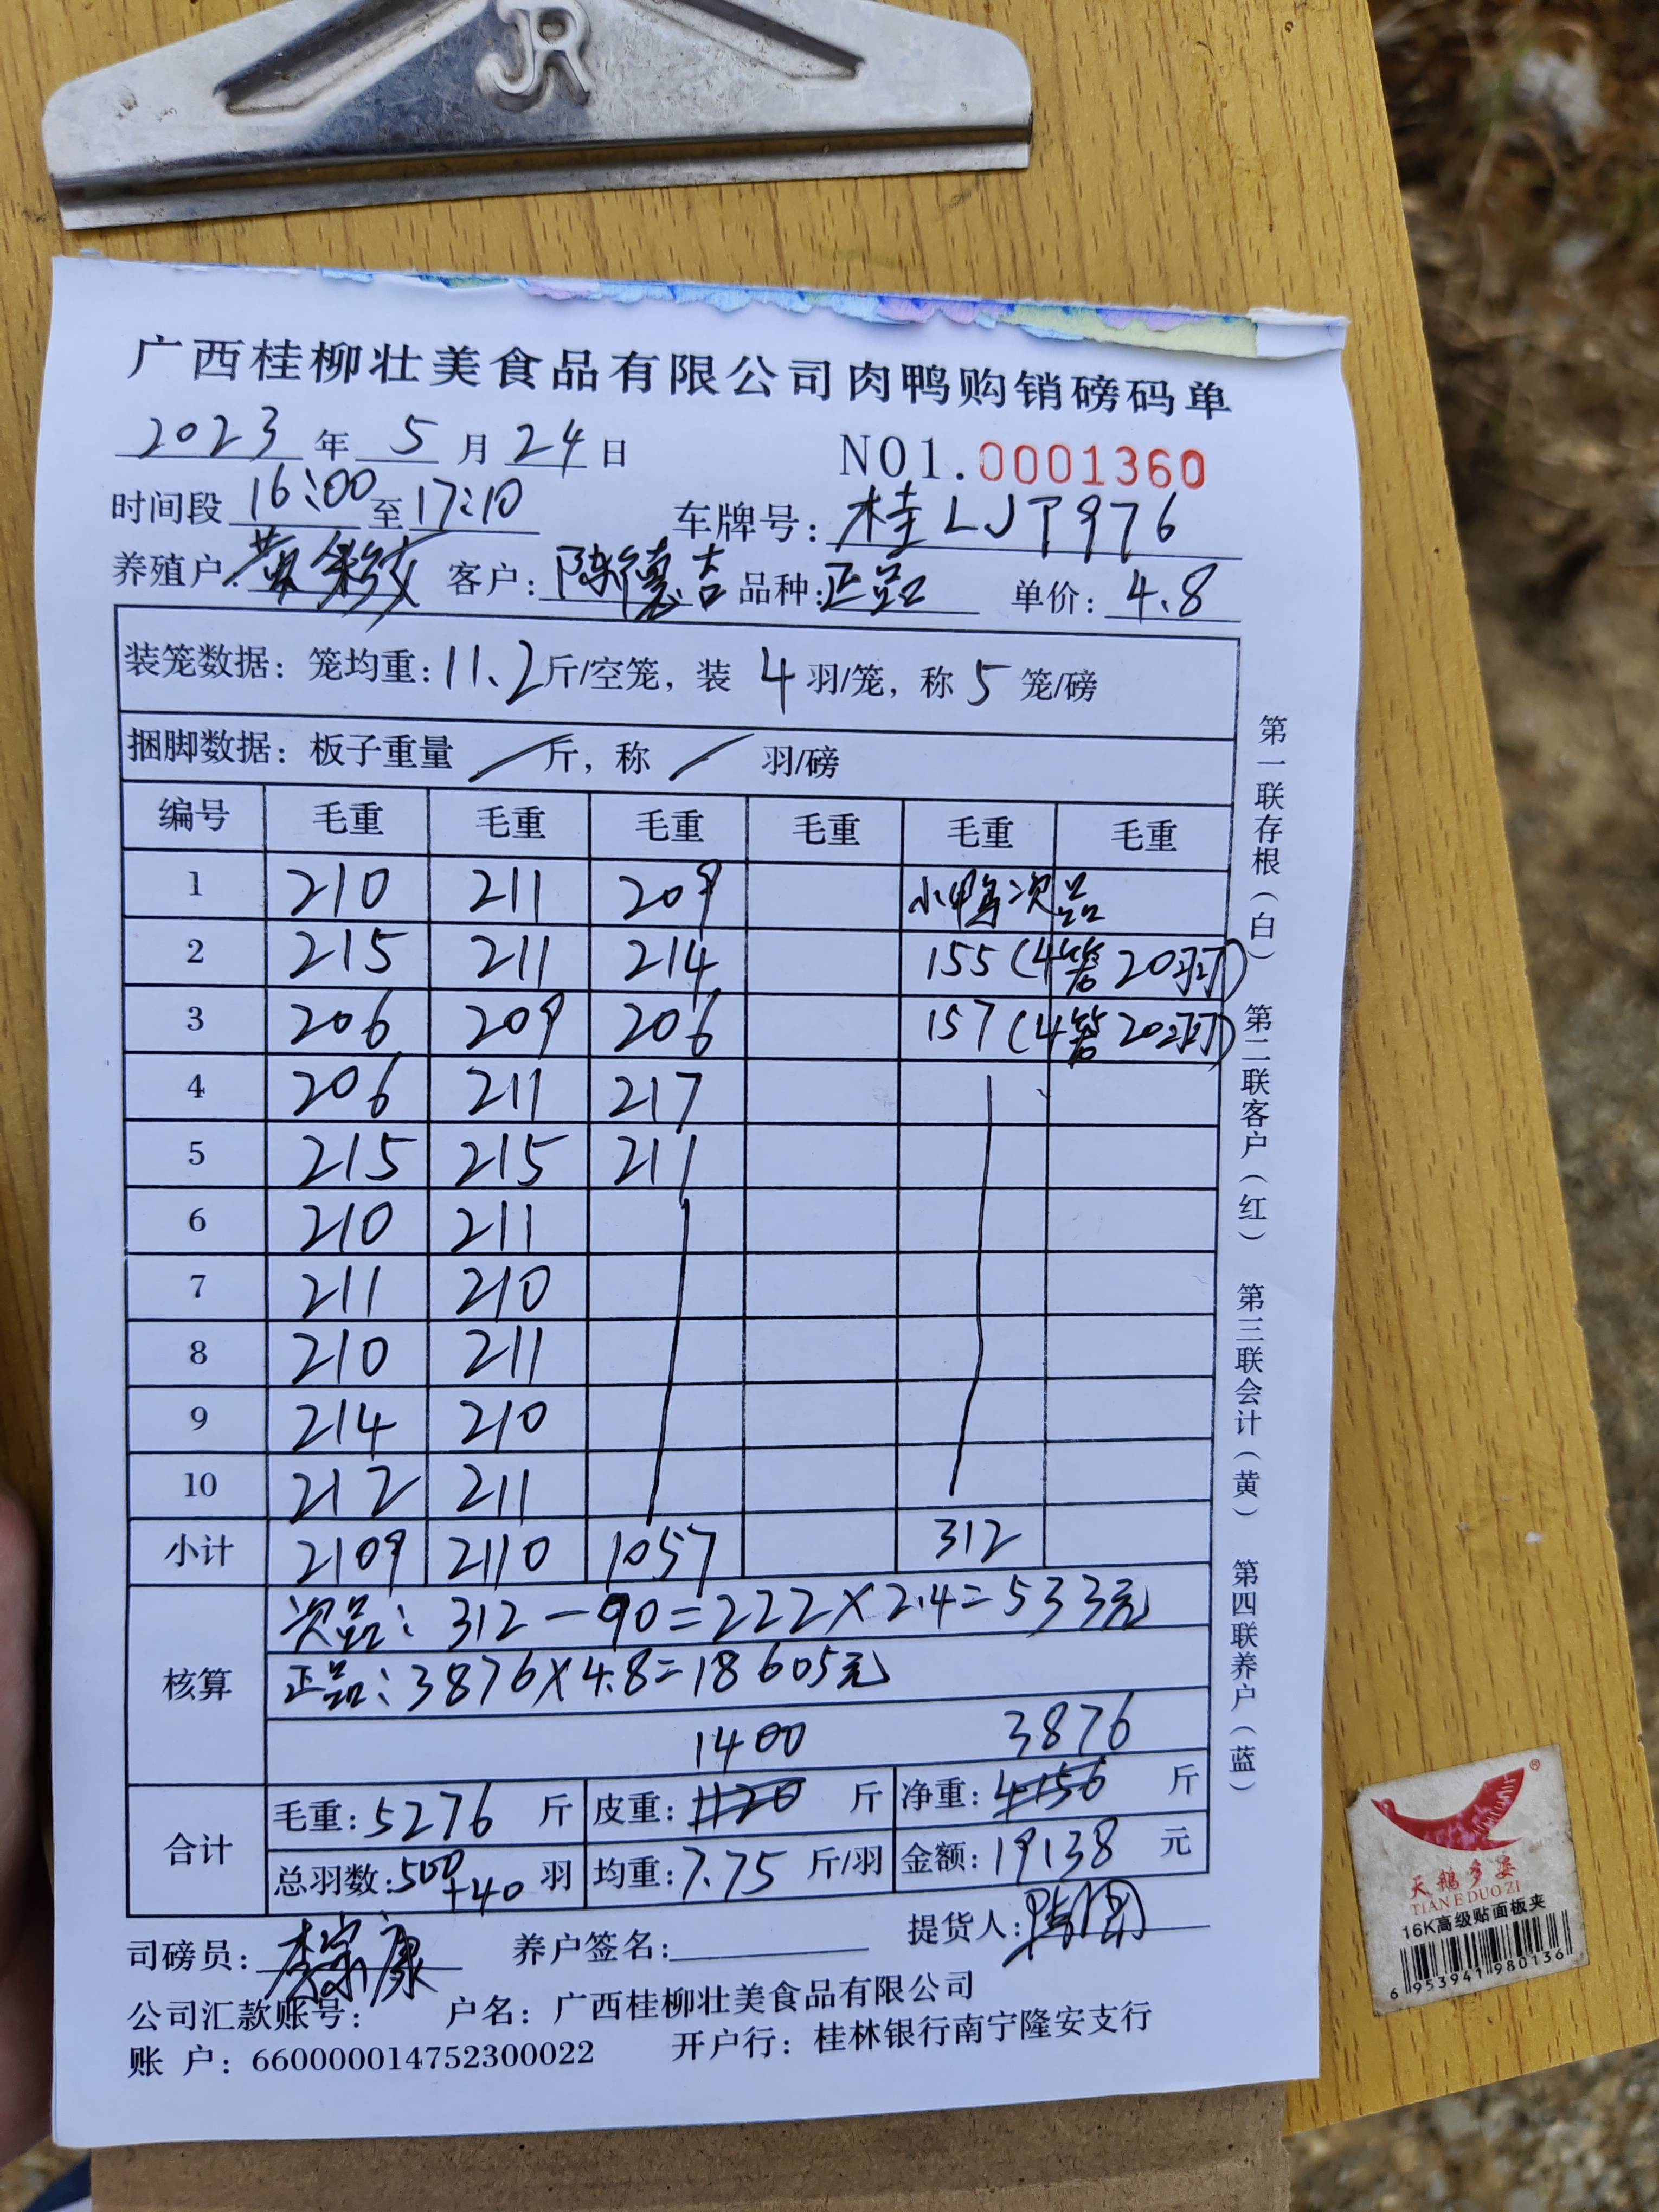 JR
广西桂柳壮美食品有限公司肉鸭购销磅码单
2023年5月24日 NO1.0001360
时间段16:00至17:10 车牌号:桂LJT976
养殖户:黄 客户:陈德吉 品种:正品 单价:4.8
装笼数据:笼均重:11.2斤/空笼,装4羽/笼,称5笼/磅
捆脚数据:板子重量/斤,称/羽/磅
编号 毛重 毛重 毛重 毛重 毛重 毛重
1 210 211 209 小鸭次品
2 215 211 214 155(4 20羽)
3 206 209 206 157(4 20羽)
4 206 211 217
5 215 215 211
6 210 211
7 211 210
8 210 211
9 214 210
10 212 211
小计 2109 2110 1057 312
核算
次品:312-90=222×2.4=533元
正品:3876×4.8=18605元
1400 3876
合计
毛重:5276斤 皮重:1120斤 净重:4156斤
总羽数:500+40羽 均重:7.75斤/羽 金额:19138元
司磅员:李宗康 养户签名: 提货人:
公司汇款账号: 户名:广西桂柳壮美食品有限公司
账户:660000014752300022 开户行:桂林银行南宁隆安支行
第一联存根(白) 第二联客户(红) 第三联会计(黄) 第四联养户(蓝)
®
天鹅多姿
TIANEDUOZI
16K高级贴面板夹
6 953941 980136